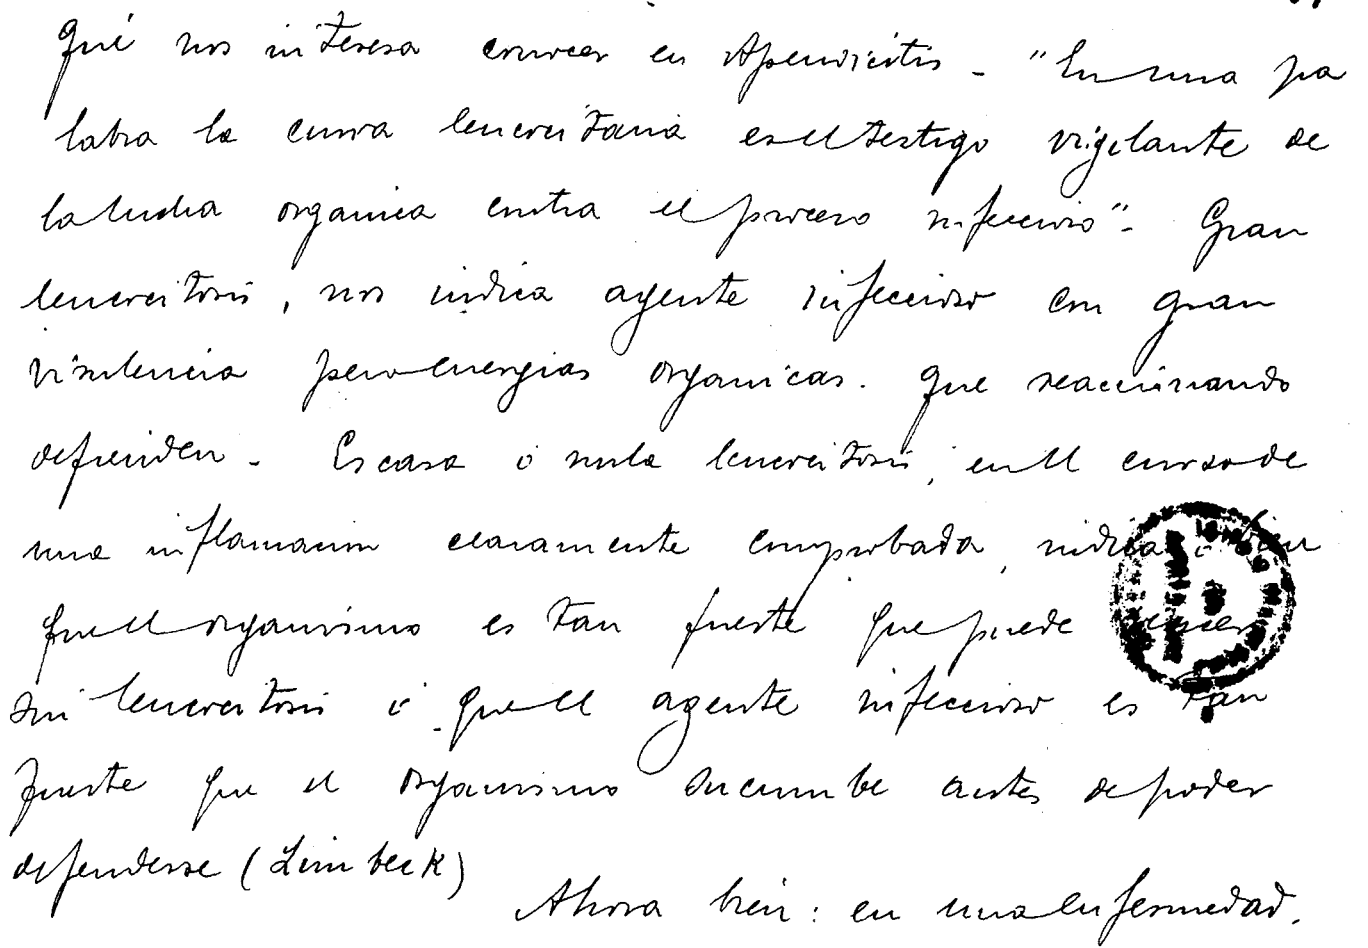 qué nos interesa conocer en Apendicitis - "En una pa
labra la curva leucocitaria es el testigo vigilante de
la lucha organica contra el proceso infeccioso"- Gran
leucocitosis, nos indica agente infeccioso con gran
virulencia pero energias organicas. que reaccionando
defienden - Escasa ó nula leucocitosis, en el curso de
una inflamacion claramente comprobada, indica ó bien
que el organismo es tan fuerte que puede vencer
sin leucocitosis ó que el agente infeccioso es tan
fuerte que el organismo sucumbe antes de poder
defenderse (Limbeck)
Ahora bien: en una enfermedad.